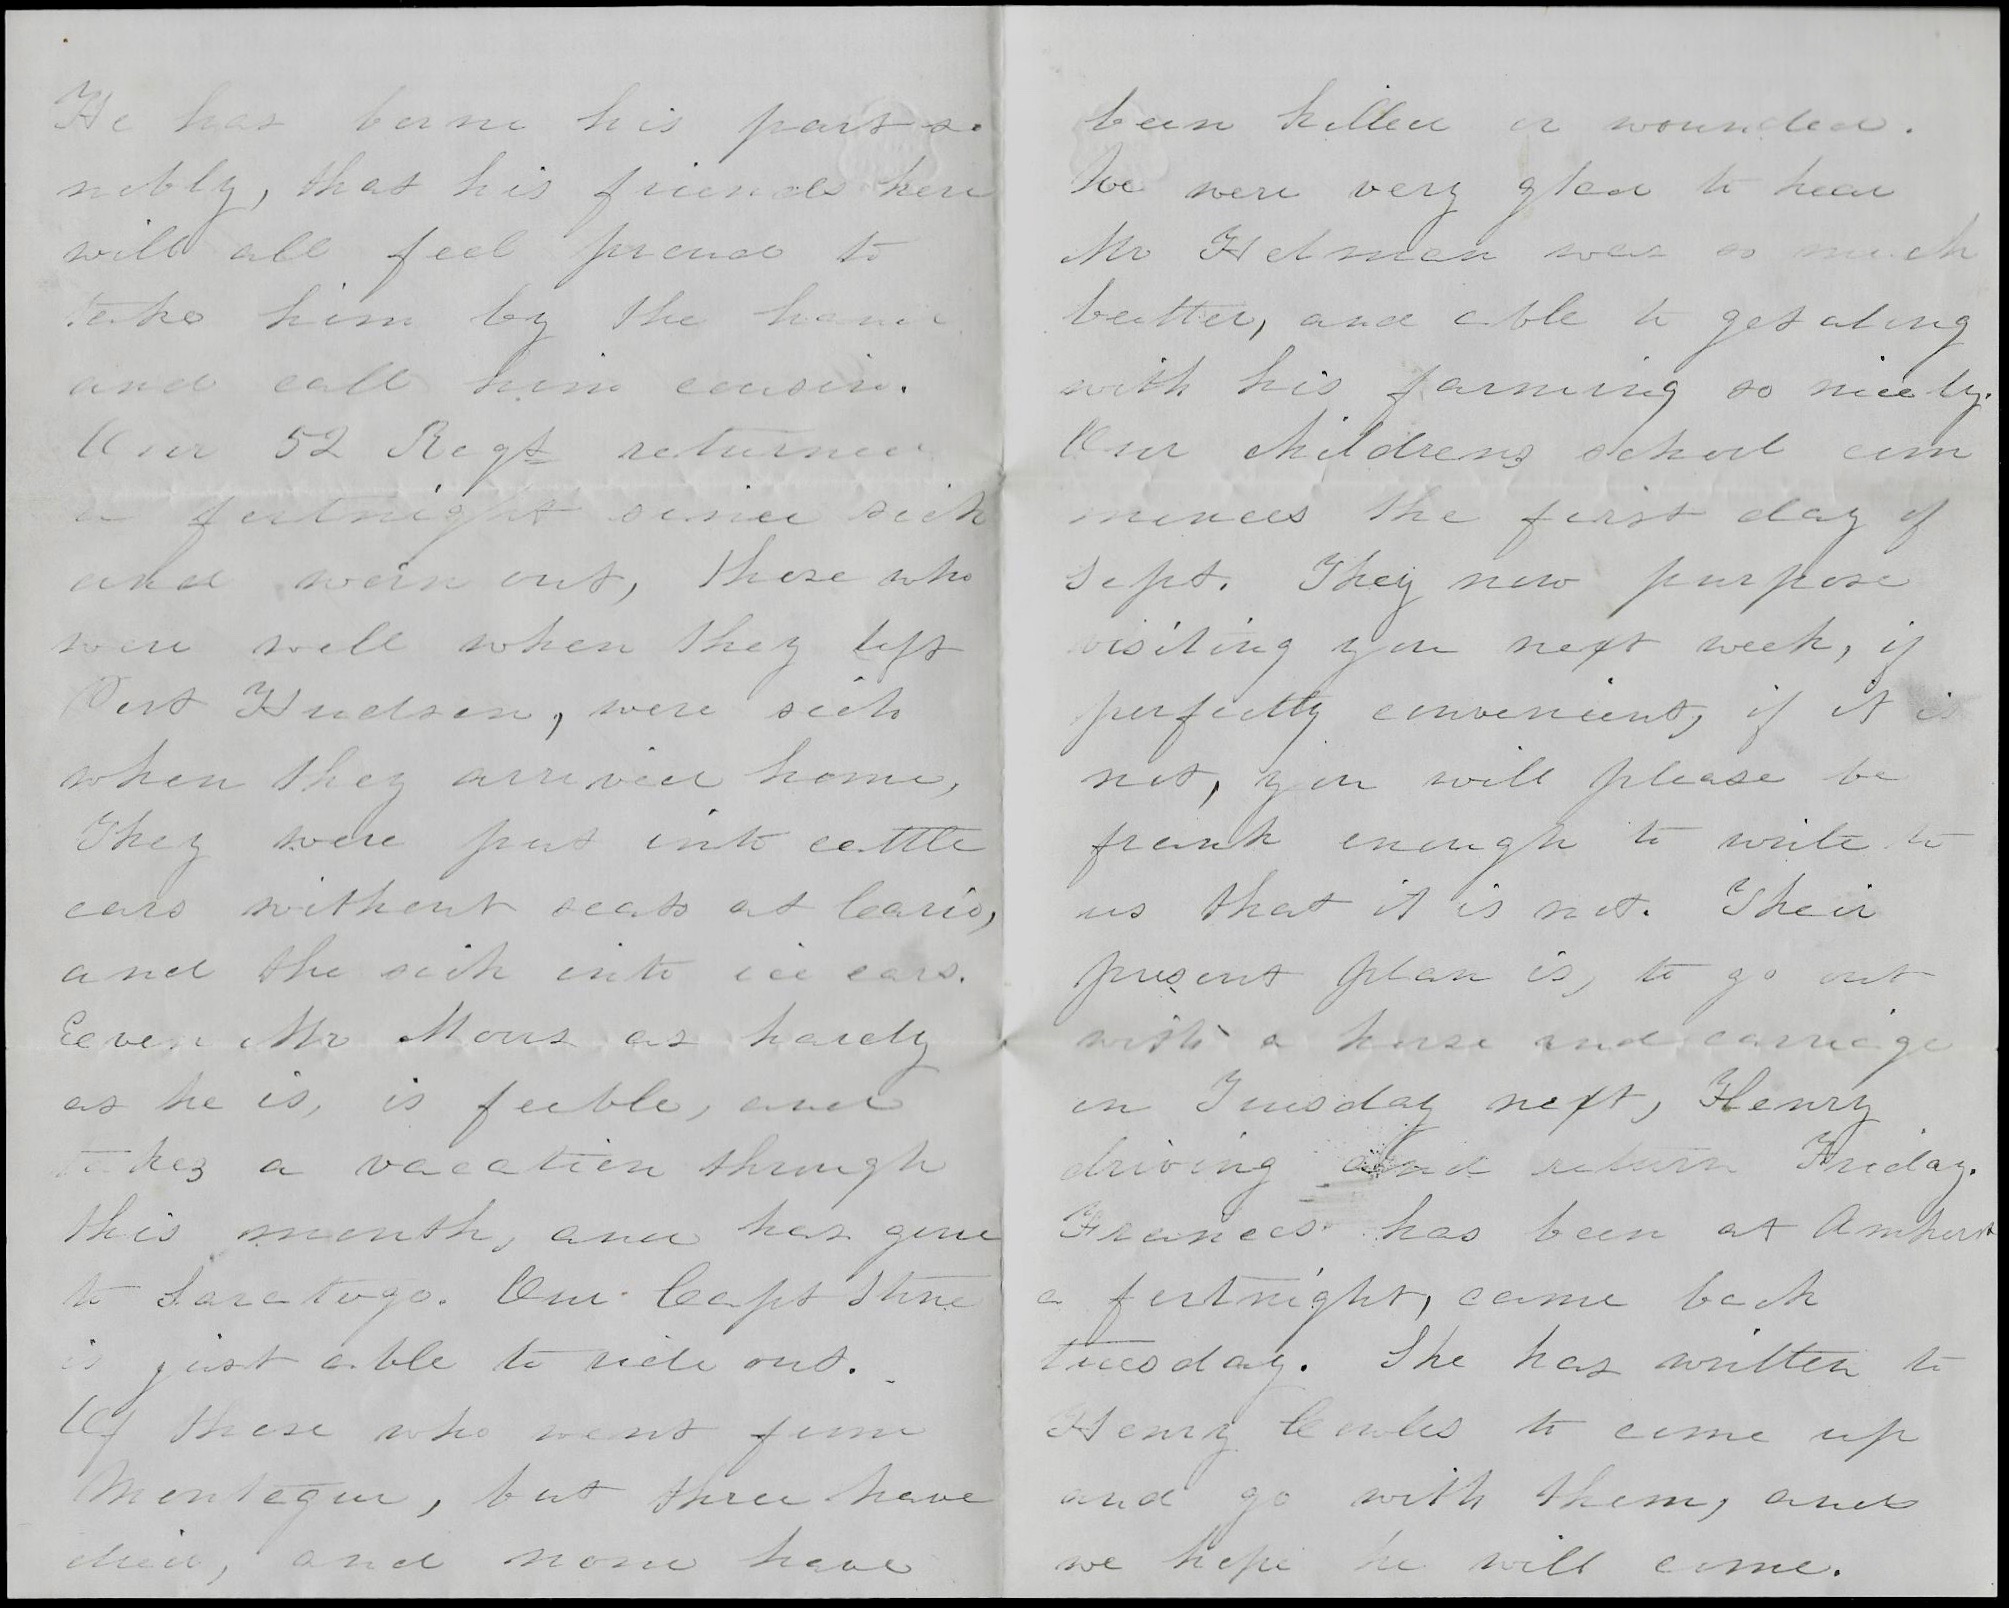 He has borne his part so
nobly, that his friends here
will all feel proud to
take him by the hand
and call him cousin.
Our 52 Regt returned
a fortnight since sick
and worn out, those who
were well when they left
Port Hudson, were sick
when they arrived home,
They were put into cattle
cars without seats at Cario,
and the sick into ice cars.
Eeven Mr Mors as hardy
as he is, is feeble, and
takes a vacation through
this month, and has gone
to Saratoga. Our Capt Stone
is just able to ride out.
Of those who went from
Montague, but three have
died, and none have
been killed or wounded.
We were very glad to hear
Mr Holman was so much
better, and able to get along
with his farming so nicely.
Our childrens school com
mences the first day of
Sept. They now purpose
visiting you next week, if
perfectly convenient, if it is
not, you will please be
frank enough to write to
us that it is not. Their
present plan is, to go out
with a horse and carriage
on Tuesday next, Henry
driving and return Friday.
Frances has been at Amherst
a fortnight, came back
tuesday. She has written to
Henry Cowles to come up
and go with them, and
we hope he will come.